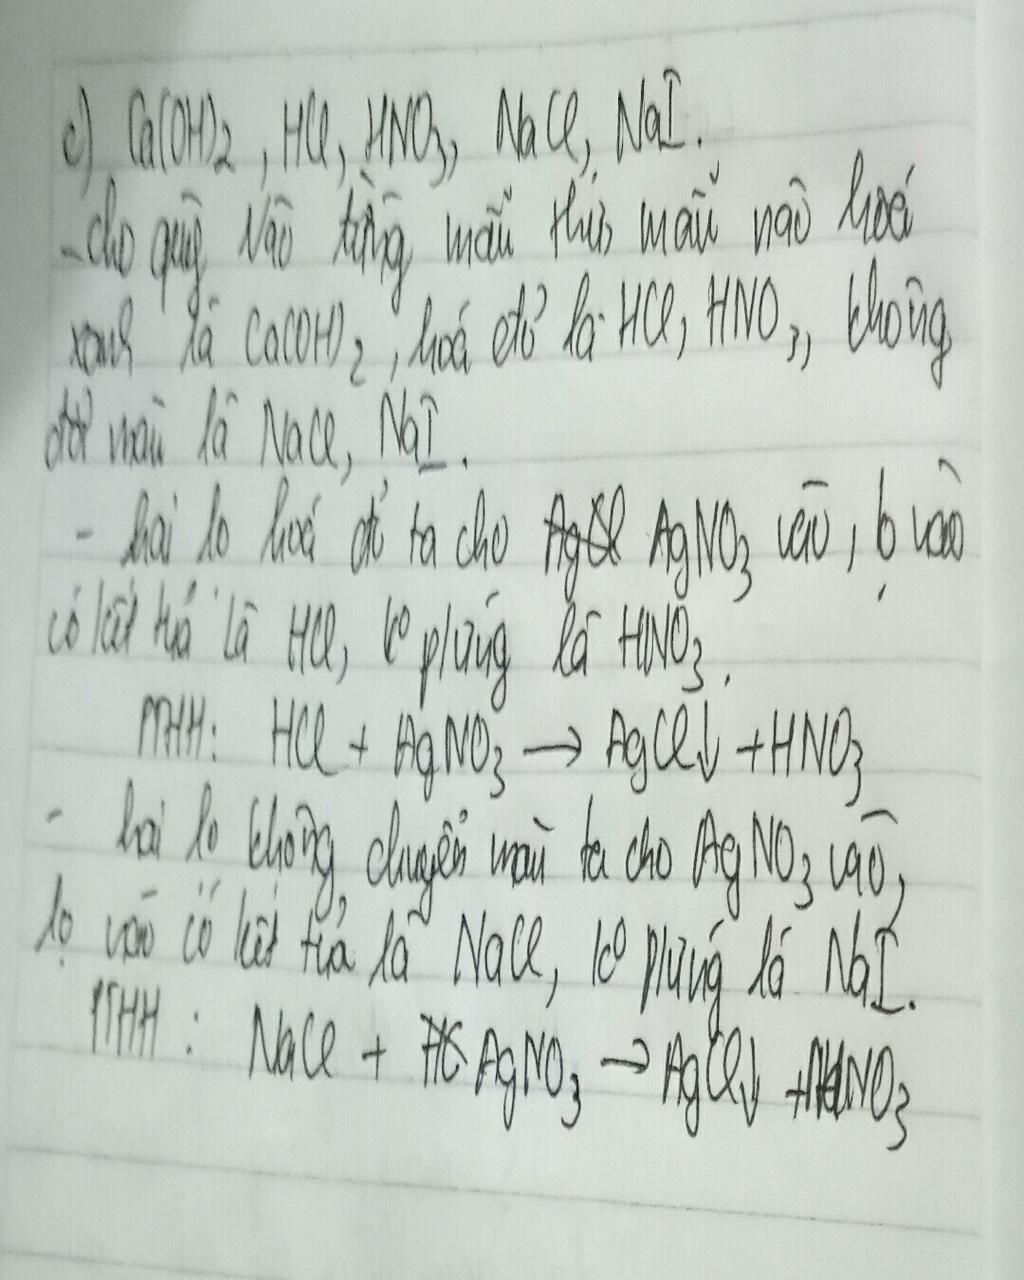 c) Ca(OH)2, HCl, HNO3, NaCl, NaI.
- cho quỳ vào từng mẫu thử, mẫu nào hoá
xanh là Ca(OH)2, hoá đỏ là HCl, HNO3, không
đổi màu là NaCl, NaI.
- hai lọ hoá đỏ ta cho AgNO3 vào, lọ nào
có kết tủa là HCl, ko pứng là HNO3.
PTHH: HCl + AgNO3 → AgCl↓ + HNO3
- hai lọ không chuyển màu ta cho AgNO3 vào,
lọ nào có kết tủa là NaCl, ko pứng là NaI.
PTHH : NaCl + AgNO3 → AgCl↓ + NaNO3